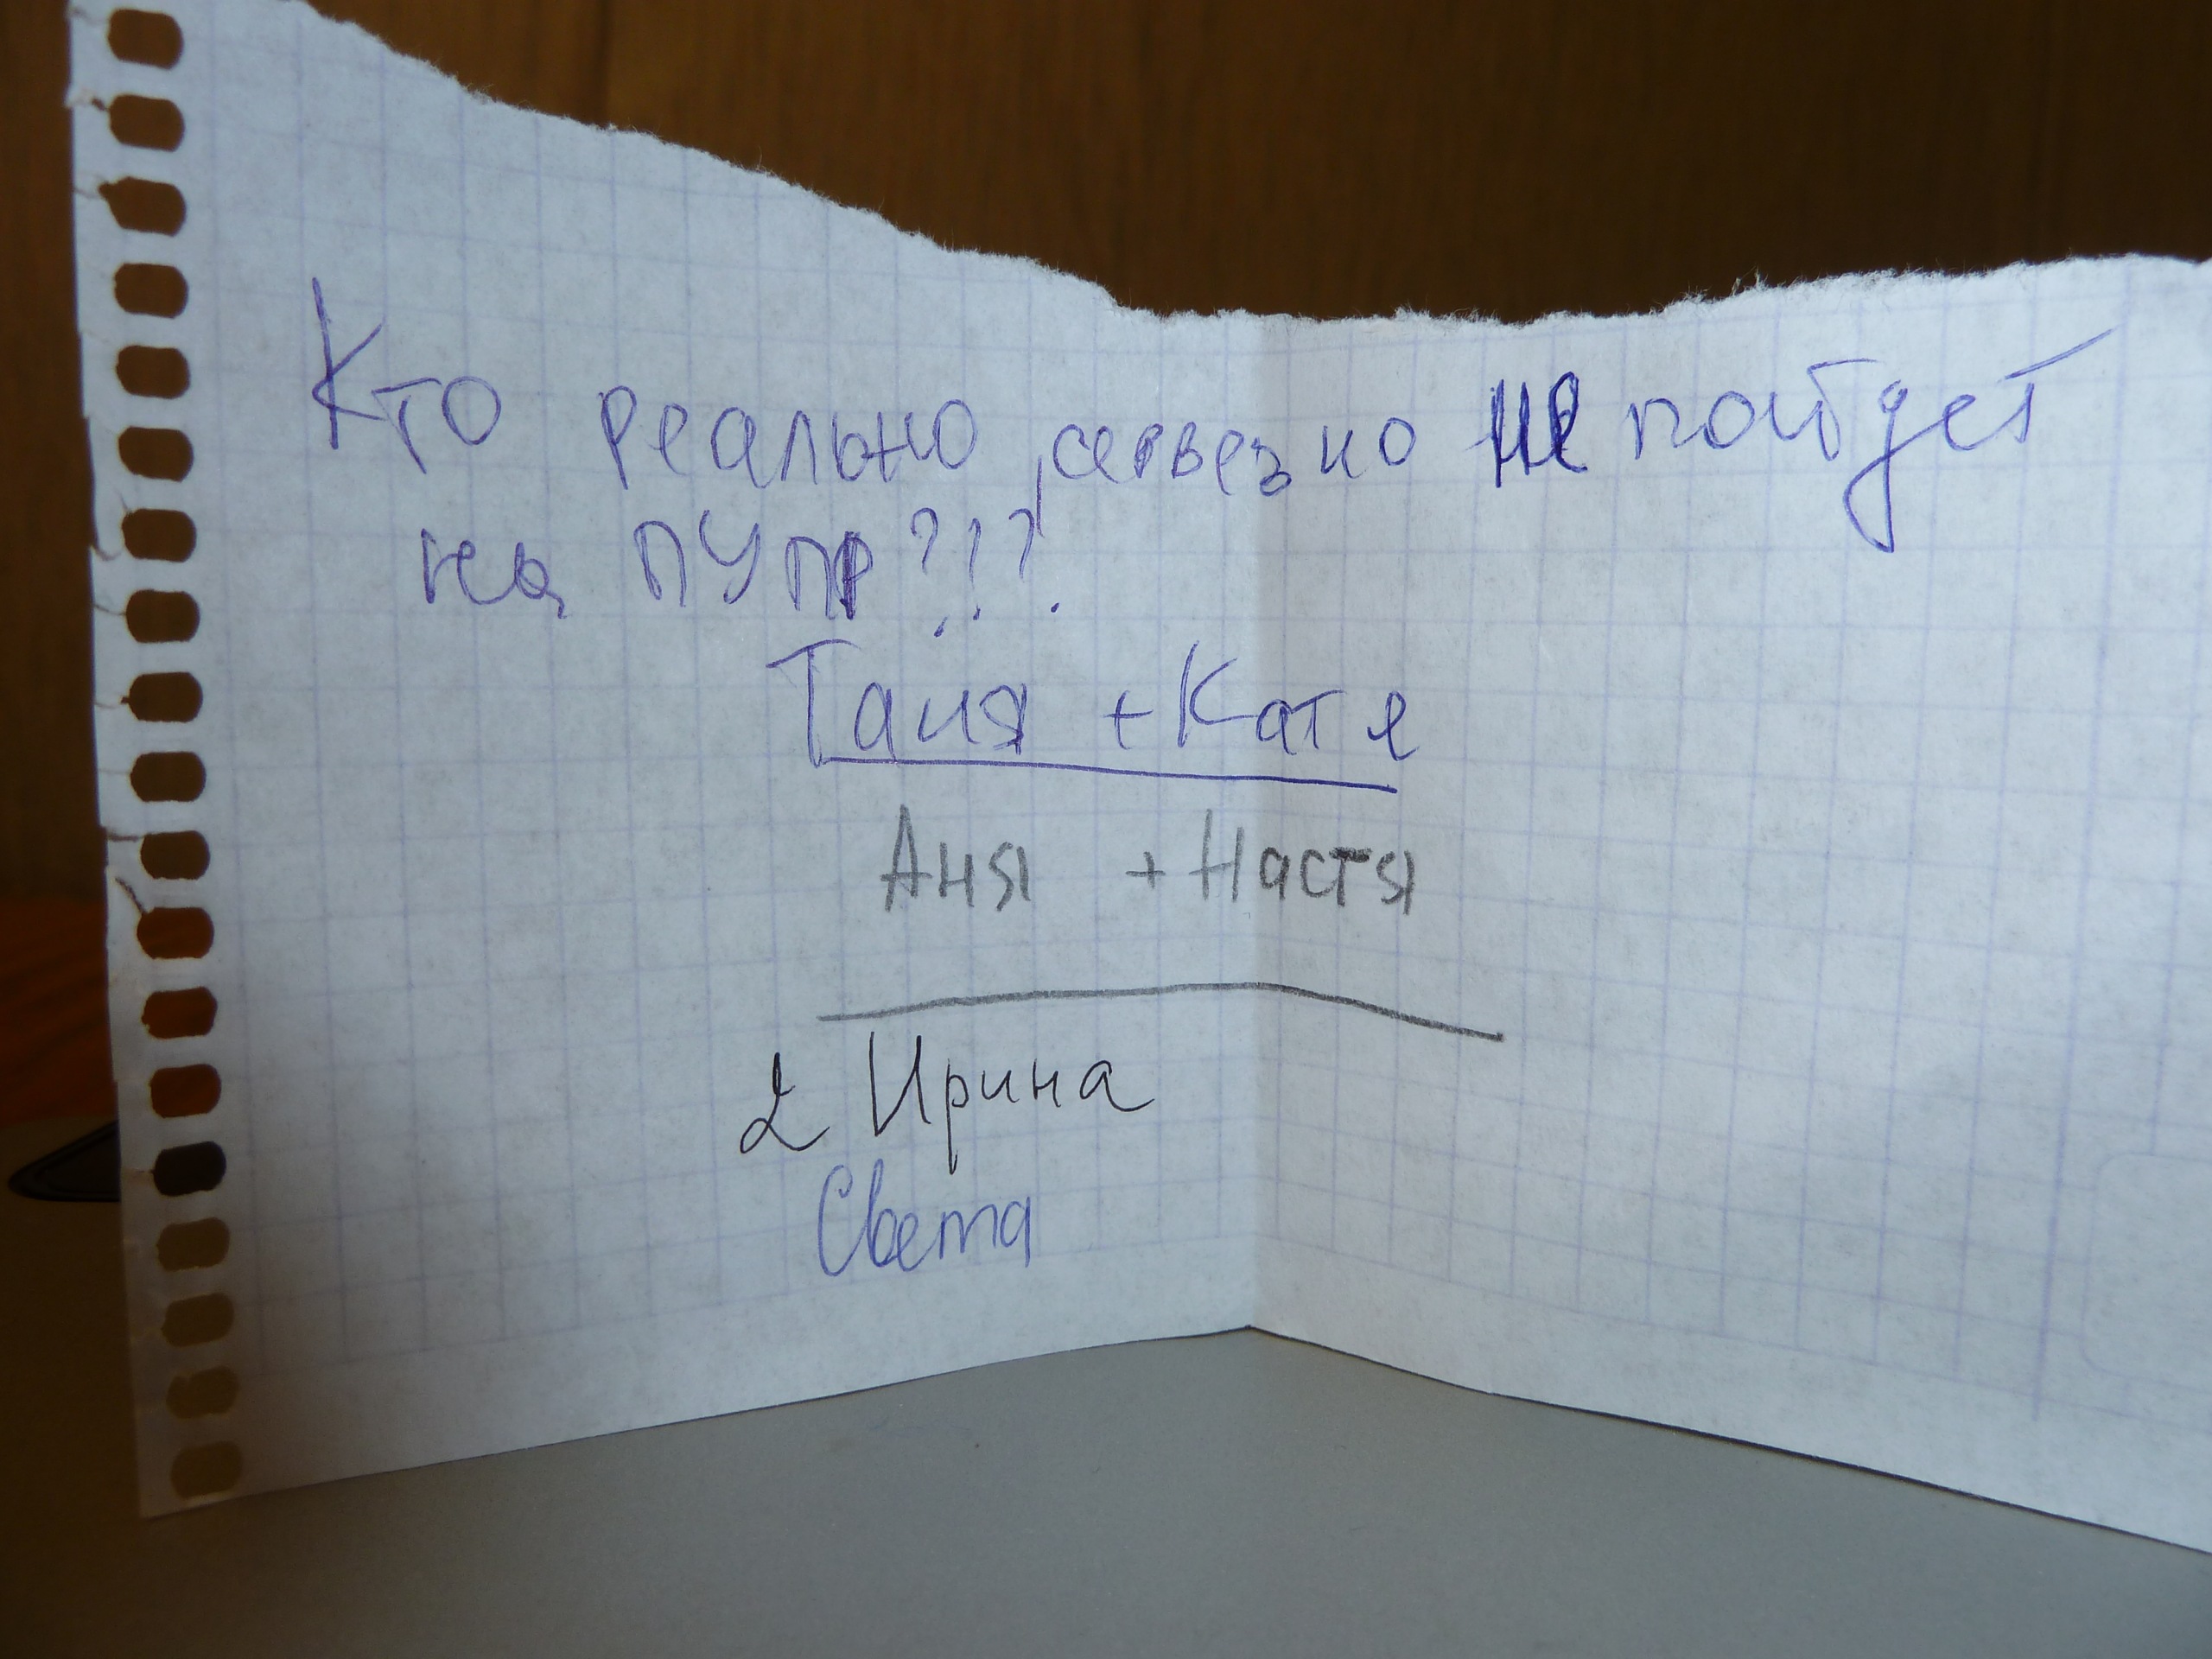 Кто реально, сервезно не пойдет
на ПУПР???
Таня + Катя
Аня + Настя
2 Ирина
Света